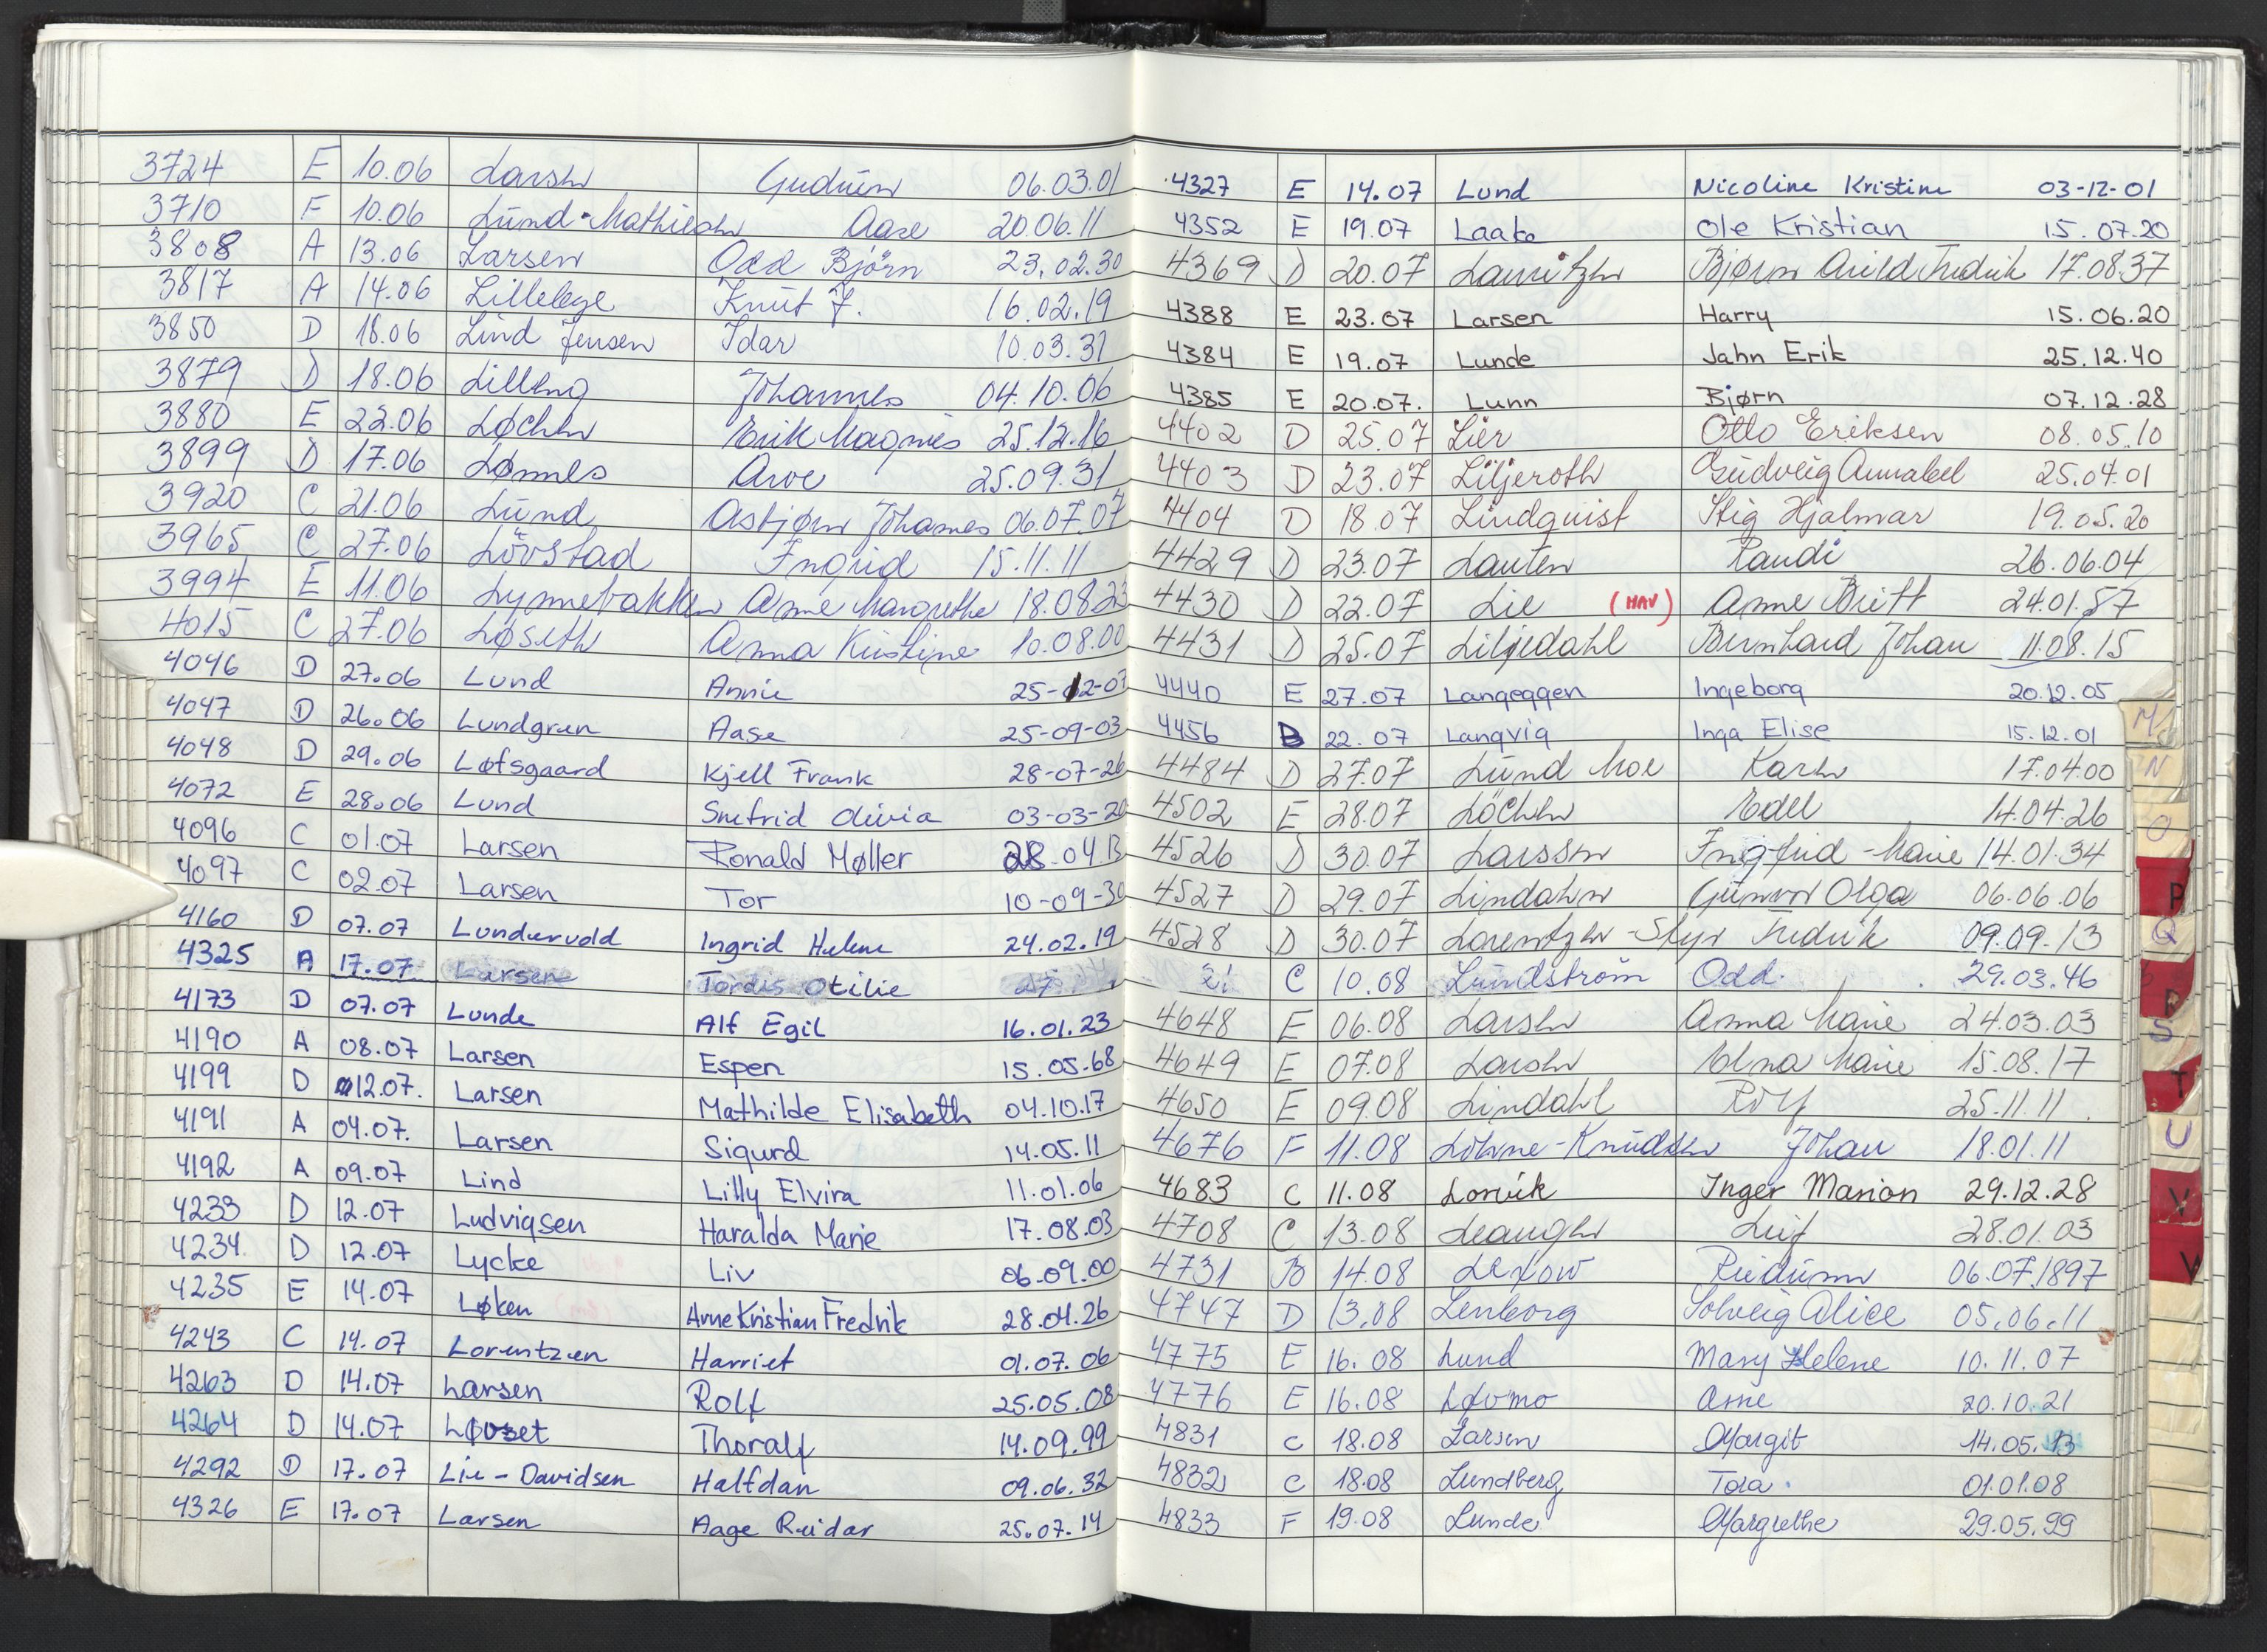 3724 E 10.06 Larsen Gudrun 06.03.01
3710 F 10.06 Lund-Mathiesen Aase 20.06.11
3808 A 13.06 Larsen Odd Bjørn 23.02.30
3817 A 14.06 Lillelege Knut J. 16.02.19
3850 D 18.06 Lind Jensen Idar 10.03.31
3879 D 18.06 Lilleng Johannes 04.10.06
3880 E 22.06 Løchen Erik Magnus 25.12.16
3899 D 17.06 Lønnes Arve 25.09.31
3920 C 21.06 Lund Asbjørn Johannes 06.07.07
3965 C 27.06 Lövstad Ingrid 15.11.11
3994 E 11.06 Lynnebakken Anne Margrethe 18.08.23
4015 C 27.06 Løseth Anna Kristine 10.08.00
4046 D 27.06 Lund Annie
4047 D 26.06 Lundgren Aase 25-09-03
4048 D 29.06 Løfsgaard Kjell Frank 28-07-26
4072 E 28.06 Lund Snefrid Olivia 03-03-20
4096 C 01.07 Larsen Ronald Møller 28.04 13
4097 C 02.07 Larsen Tor 10-09-30
4160 D 07.07 Lundervold Ingrid Helene 24.02.19
4325 A 17.07 Larsen Tordis Otilie 27
4173 D 07.07 Lunde Alf Egil 16.01.23
4190 A 08.07 Larsen Espen 15.05.68
4199 D 12.07. Larsen Mathilde Elisabeth 04.10.17
4191 A 04.07. Larsen Sigurd 14.05.11
4192 A 09.07 Lind Lilly Elvira 11.01.06
4233 D 12.07 Ludvigsen Haralda Marie 17.08.03
4234 D 12.07 Lycke Liv 06.09.00
4235 E 14.07 Løken Arne Kristian Fredrik 28.04.26
4243 C 14.07 Lorentzen Harriet 01.07.06
4263 D 14.07 Larsen Rolf 25.05.08
4264 D 14.07 Løvset Thoralf 14.09.99
4292 D 17.07 Lie-Davidsen Halfdan 09.06.32
4326 E 17.07 Larsen Aage Reidar 25.07.14
4327 E 14.07 Lund Nicoline Kristine 03-12-01
4352 E 19.07 Laake Ole Kristian 15.07.20
4369 D 20.07 Lauritzen Bjørn Arild Fredrik 17.08.37
4388 E 23.07 Larsen Harry 15.06.20
4384 E 19.07 Lunde Jahn Erik 25.12.40
4385 E 20.07. Lunn Bjørn 07.12.28
4402 D 25.07 Lier Otto Eriksen 08.05.10
4403 D 23.07 Liljeroth Gudveig Annabel 25.04.01
4404 D 18.07 Lindquist Stig Hjalmar 19.05.20
4429 D 23.07 Lauten Randi 26.06.04
4430 D 22.07 Lie (HAV) Anne Britt 24.01.57
4431 D 25.07 Liljedahl Bernhard Johan 11.08.15
4440 E 27.07 Langeggen Ingeborg 20.12.05
4456 D 22.07 Langvig Inga Elise 15.12.01
4484 D 27.07 Lund Moe Karen 17.04.00
4502 E 28.07 Löchen Edel 14.04.26
4526 D 30.07 Larssen Ingfrid-Marie 14.01.34
4527 D 29.07 Lindahn Gunvor Olga 06.06.06
4528 D 30.07 Lorentzen-Styr Fredrik 09.09.13
C 10.08 Lundström Odd 29.03.46
4648 E 06.08 Larsen Anna Marie 24.03.03
4649 E 07.08 Larsen Edna Marie 15.08.17
4650 E 09.08 Lindahl Rolf 25.11.11
4676 F 11.08 Lohne-Knudsen Johan 18.01.11
4683 C 11.08 Lorvik Inger Marion 29.12.28
4708 C 13.08 Leanger Leif 28.01.03
4731 B 14.08 Lexow Reidunn 06.07.1897
4747 D 13.08 Lenborg Solveig Alice 05.06.11
4775 E 16.08 Lund Mary Helene 10.11.07
4776 E 16.08 Løvmo Arne 20.10.21
4831 C 18.08 Larsen Margit 14.05.13
4832 C 18.08 Lundberg Tora 01.01.08
4833 F 19.08 Lunde Margrethe 29.05.99
M
N
O
P
Q
R
S
T
U
V